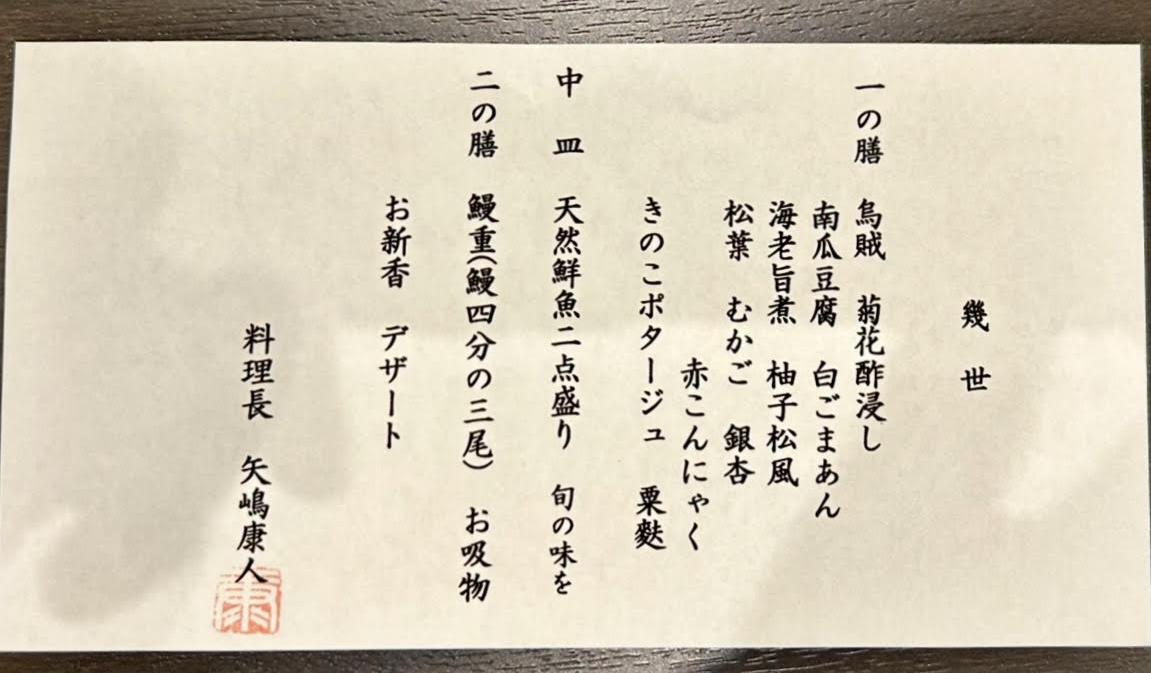 幾世
一の膳　烏賊　菊花酢浸し
南瓜豆腐　白ごまあん
海老旨煮　柚子松風
松葉　むかご　銀杏
赤こんにゃく
きのこポタージュ　粟麩
中皿　天然鮮魚二点盛り　旬の味を
二の膳　鰻重(鰻四分の三尾)　お吸物
お新香　デザート
料理長　矢嶋康人
康